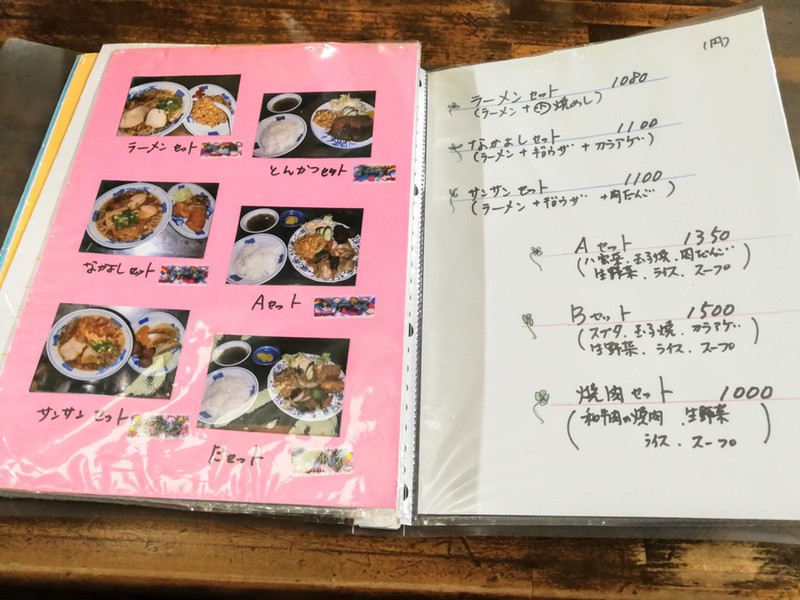 ラーメンセット
とんかつセット
なかよしセット
Aセット
サンサンセット
Bセット
(円)
ラーメンセット 1080
(ラーメン+小焼めし)
なかよしセット 1100
(ラーメン+ギョウザ+カラアゲ)
サンサンセット 1100
(ラーメン+ギョウザ+肉だんご)
Aセット 1350
(八宝菜、玉子焼、肉だんご
生野菜、ライス、スープ)
Bセット 1500
(スブタ、玉子焼、カラアゲ
生野菜、ライス、スープ)
焼肉セット 1000
(和牛肉の焼肉、生野菜
ライス、スープ)